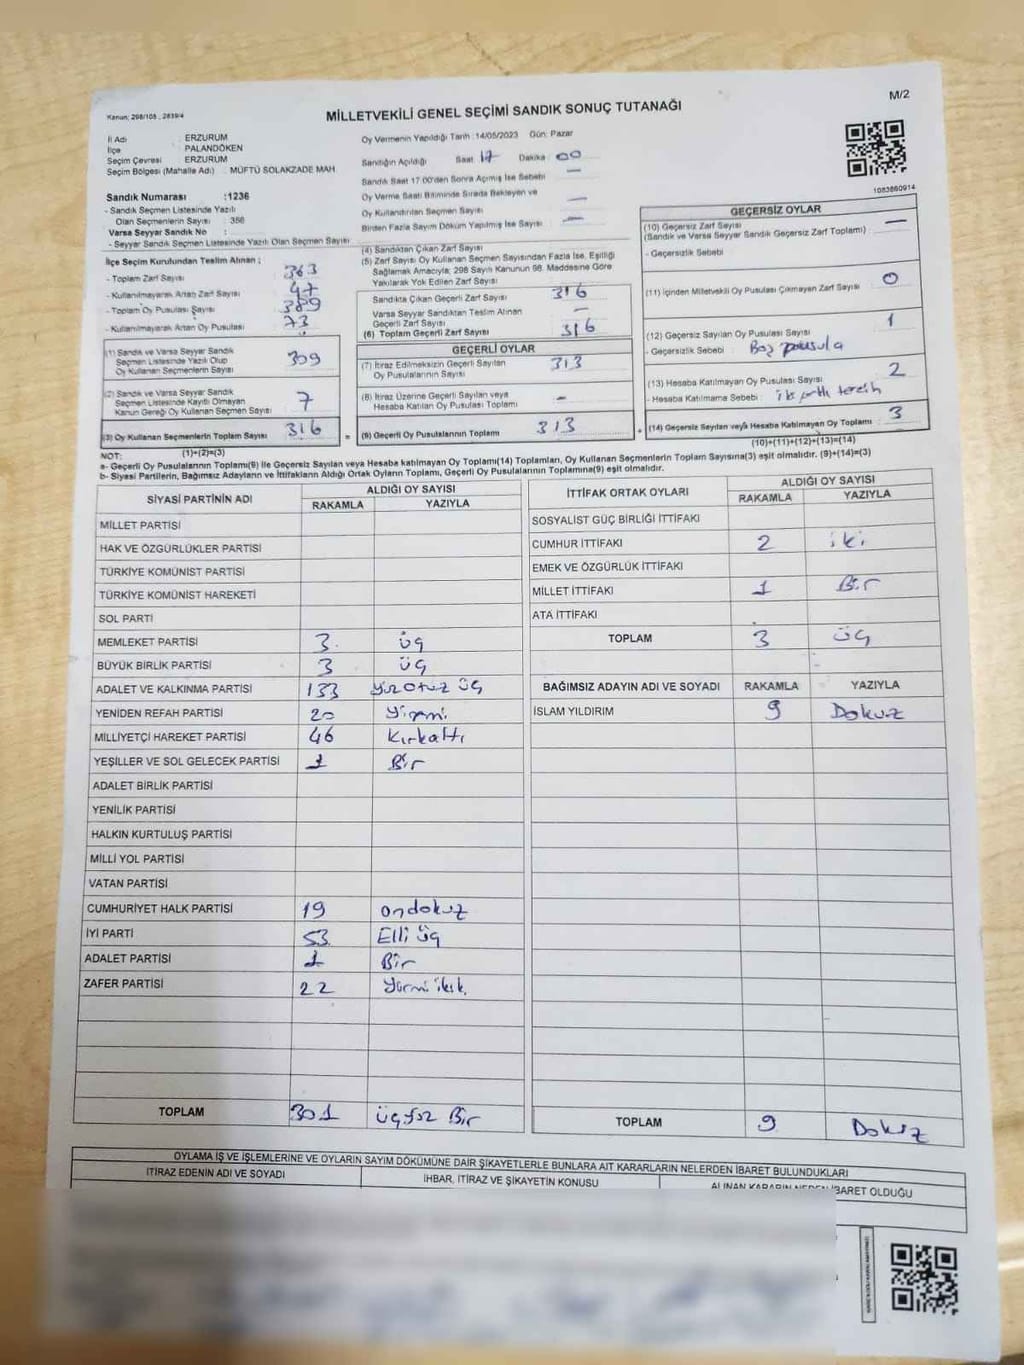 M/2
Kanun: 298/105 , 2839/4
MİLLETVEKİLİ GENEL SEÇİMİ SANDIK SONUÇ TUTANAĞI
İl Adı : ERZURUM
İlçe : PALANDÖKEN
Seçim Çevresi : ERZURUM
Seçim Bölgesi (Mahalle Ad.) . MÜFTÜ SOLAKZADE MAH
Sandık Numarası :1236
- Sandık Seçmen Listesinde Yazılı
Olan Seçmenlerin Sayısı : 356
Varsa Seyyar Sandık No :
- Seyyar Sandık Seçmen Listesinde Yazılı Olan Seçmen Sayısı
Oy Vermenin Yapıldığı Tarih :14/05/2023 Gün: Pazar
Sandığın Açıldığı Saat 17 Dakika : 00
Sandık Saat 17.00'den Sonra Açılmış İse Sebebi —
Oy Verme Saati Bitiminde Sırada Bekleyen ve
Oy Kullandırılan Seçmen Sayısı —
Birden Fazla Sayım Döküm Yapılmış İse Sayısı —
1083860914
İlçe Seçim Kurulundan Teslim Alınan ;
- Toplam Zarf Sayısı 363
- Kullanılmayarak Artan Zarf Sayısı 47
- Toplam Oy Pusulası Sayısı 389
- Kullanılmayarak Artan Oy Pusulası 73
(1) Sandık ve Varsa Seyyar Sandık
Seçmen Listesinde Yazılı Olup
Oy Kullanan Seçmenlerin Sayısı 309
(2) Sandık ve Varsa Seyyar Sandık
Seçmen Listesinde Kayıtlı Olmayan
Kanun Gereği Oy Kullanan Seçmen Sayısı 7
(3) Oy Kullanan Seçmenlerin Toplam Sayısı 316
(1)+(2)=(3)
(4) Sandıktan Çıkan Zarf Sayısı
(5) Zarf Sayısı Oy Kullanan Seçmen Sayısından Fazla İse, Eşitliği
Sağlamak Amacıyla; 298 Sayılı Kanunun 98. Maddesine Göre
Yakılarak Yok Edilen Zarf Sayısı
Sandıkta Çıkan Geçerli Zarf Sayısı 316
Varsa Seyyar Sandıktan Teslim Alınan
Geçerli Zarf Sayısı —
(6) Toplam Geçerli Zarf Sayısı 316
GEÇERLİ OYLAR
(7) İtiraz Edilmeksizin Geçerli Sayılan
Oy Pusulalarının Sayısı 313
(8) İtiraz Üzerine Geçerli Sayılan veya
Hesaba Katılan Oy Pusulası Toplamı -
(9) Geçerli Oy Pusulalarının Toplamı 313
GEÇERSİZ OYLAR
(10) Geçersiz Zarf Sayısı
(Sandık ve Varsa Seyyar Sandık Geçersiz Zarf Toplamı) : —
- Geçersizlik Sebebi
(11) İçinden Milletvekili Oy Pusulası Çıkmayan Zarf Sayısı 0
(12) Geçersiz Sayılan Oy Pusulası Sayısı 1
- Geçersizlik Sebebi Boş pusula
(13) Hesaba Katılmayan Oy Pusulası Sayısı 2
- Hesaba Katılmama Sebebi : iki tercih
(14) Geçersiz Sayılan veya Hesaba Katılmayan Oy Toplamı 3
(10)+(11)+(12)+(13)=(14)
NOT:
a- Geçerli Oy Pusulalarının Toplamı(9) ile Geçersiz Sayılan veya Hesaba katılmayan Oy Toplamı(14) Toplamları, Oy Kullanan Seçmenlerin Toplam Sayısına(3) eşit olmalıdır. (9)+(14)=(3)
b- Siyasi Partilerin, Bağımsız Adayların ve İttifakların Aldığı Ortak Oyların Toplamı, Geçerli Oy Pusulalarının Toplamına(9) eşit olmalıdır.
SİYASİ PARTİNİN ADI ALDIĞI OY SAYISI
RAKAMLA YAZIYLA
MİLLET PARTİSİ
HAK VE ÖZGÜRLÜKLER PARTİSİ
TÜRKİYE KOMÜNİST PARTİSİ
TÜRKİYE KOMÜNİST HAREKETİ
SOL PARTİ
MEMLEKET PARTİSİ 3 üç
BÜYÜK BİRLİK PARTİSİ 3 üç
ADALET VE KALKINMA PARTİSİ 133 yüzotuz üç
YENİDEN REFAH PARTİSİ 20 yirmi
MİLLİYETÇİ HAREKET PARTİSİ 46 kırkaltı
YEŞİLLER VE SOL GELECEK PARTİSİ 1 Bir
ADALET BİRLİK PARTİSİ
YENİLİK PARTİSİ
HALKIN KURTULUŞ PARTİSİ
MİLLİ YOL PARTİSİ
VATAN PARTİSİ
CUMHURİYET HALK PARTİSİ 19 ondokuz
İYİ PARTİ 53 Elli üç
ADALET PARTİSİ 1 Bir
ZAFER PARTİSİ 22
TOPLAM 301 üçyüz Bir
İTTİFAK ORTAK OYLARI ALDIĞI OY SAYISI
RAKAMLA YAZIYLA
SOSYALİST GÜÇ BİRLİĞİ İTTİFAKI
CUMHUR İTTİFAKI 2 iki
EMEK VE ÖZGÜRLÜK İTTİFAKI
MİLLET İTTİFAKI 1 Bir
ATA İTTİFAKI
TOPLAM 3 üç
BAĞIMSIZ ADAYIN ADI VE SOYADI RAKAMLA YAZIYLA
İSLAM YILDIRIM 9 Dokuz
TOPLAM 9 Dokuz
OYLAMA İŞ VE İŞLEMLERİNE VE OYLARIN SAYIM DÖKÜMÜNE DAİR ŞİKAYETLERLE BUNLARA AİT KARARLARIN NELERDEN İBARET BULUNDUKLARI
İTİRAZ EDENİN ADI VE SOYADI
İHBAR, İTİRAZ VE ŞİKAYETİN KONUSU
ALINAN KARARIN NEDEN İBARET OLDUĞU